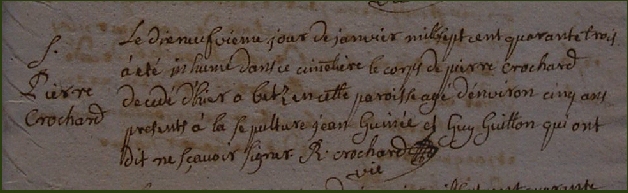 S.
Pierre
Crochard
Le dieneufvieme jour de janvier mil sept cent quarante trois
a été inhumé dans ce cimetiere le corps de pierre Crochard
decede d'hier a betz en cette paroisse agé denviron cinq ans
presents à la sepulture jean Guinée et Guy Guitton qui ont
dit ne sçavoir signer R. crochard
vic